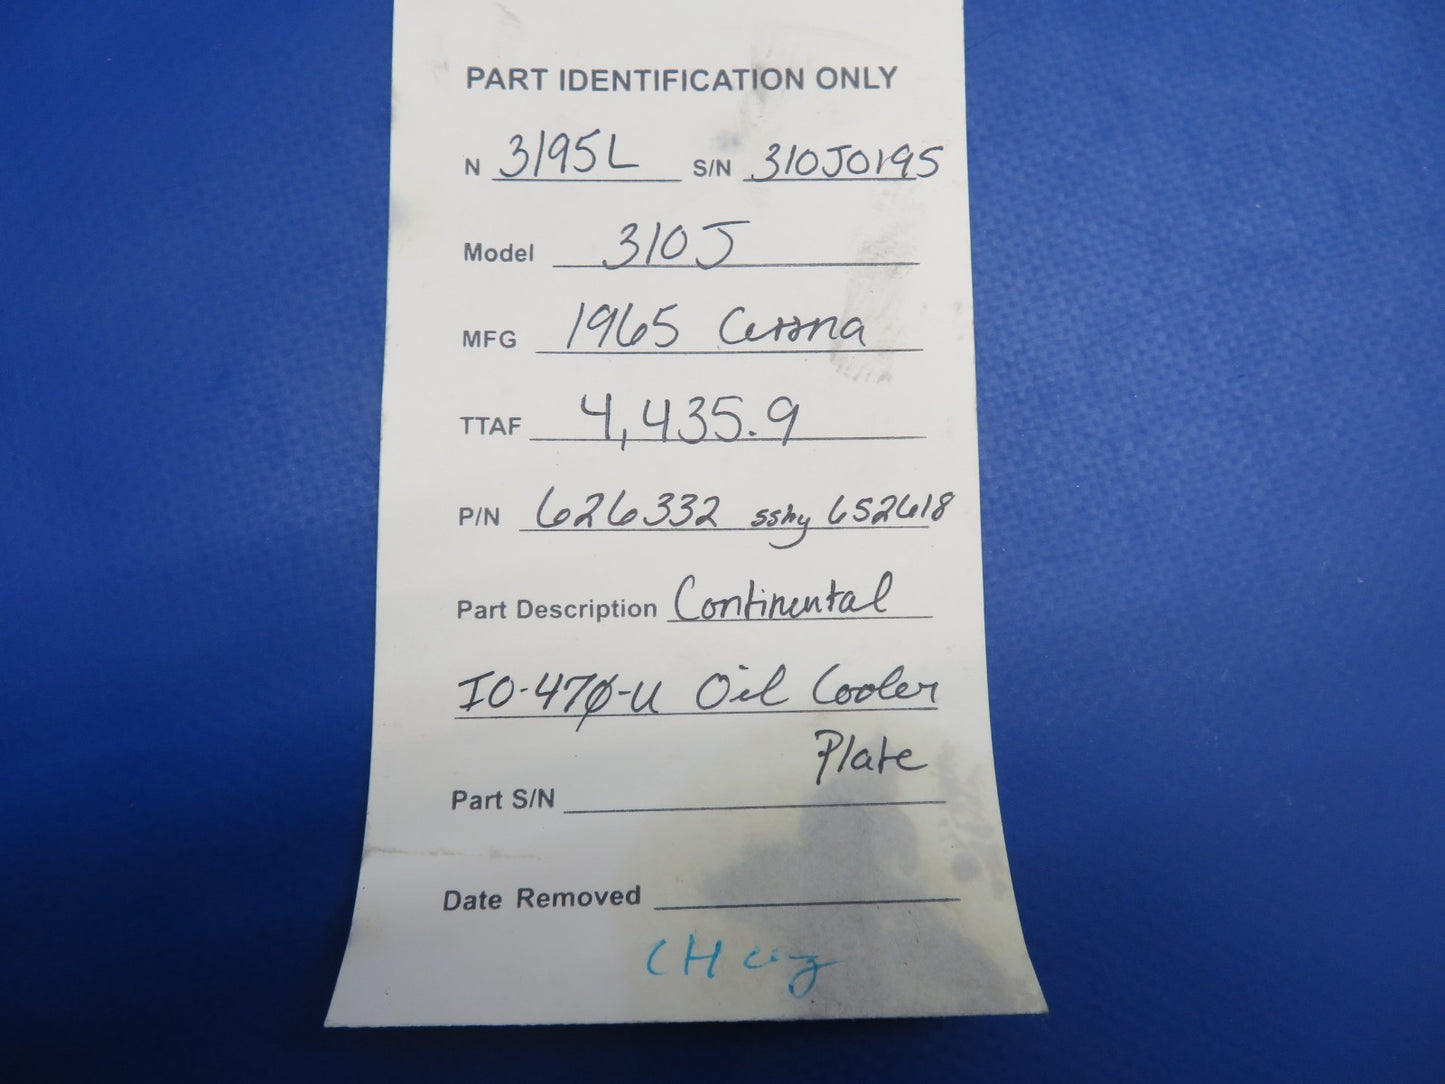 PART IDENTIFICATION ONLY
N 3195L S/N 310J0195
Model 310J
MFG 1965 Cessna
TTAF 4,435.9
P/N 626332 652618
Part Description Continental
IO-470-U Oil Cooler
Plate
Part S/N
Date Removed
CH